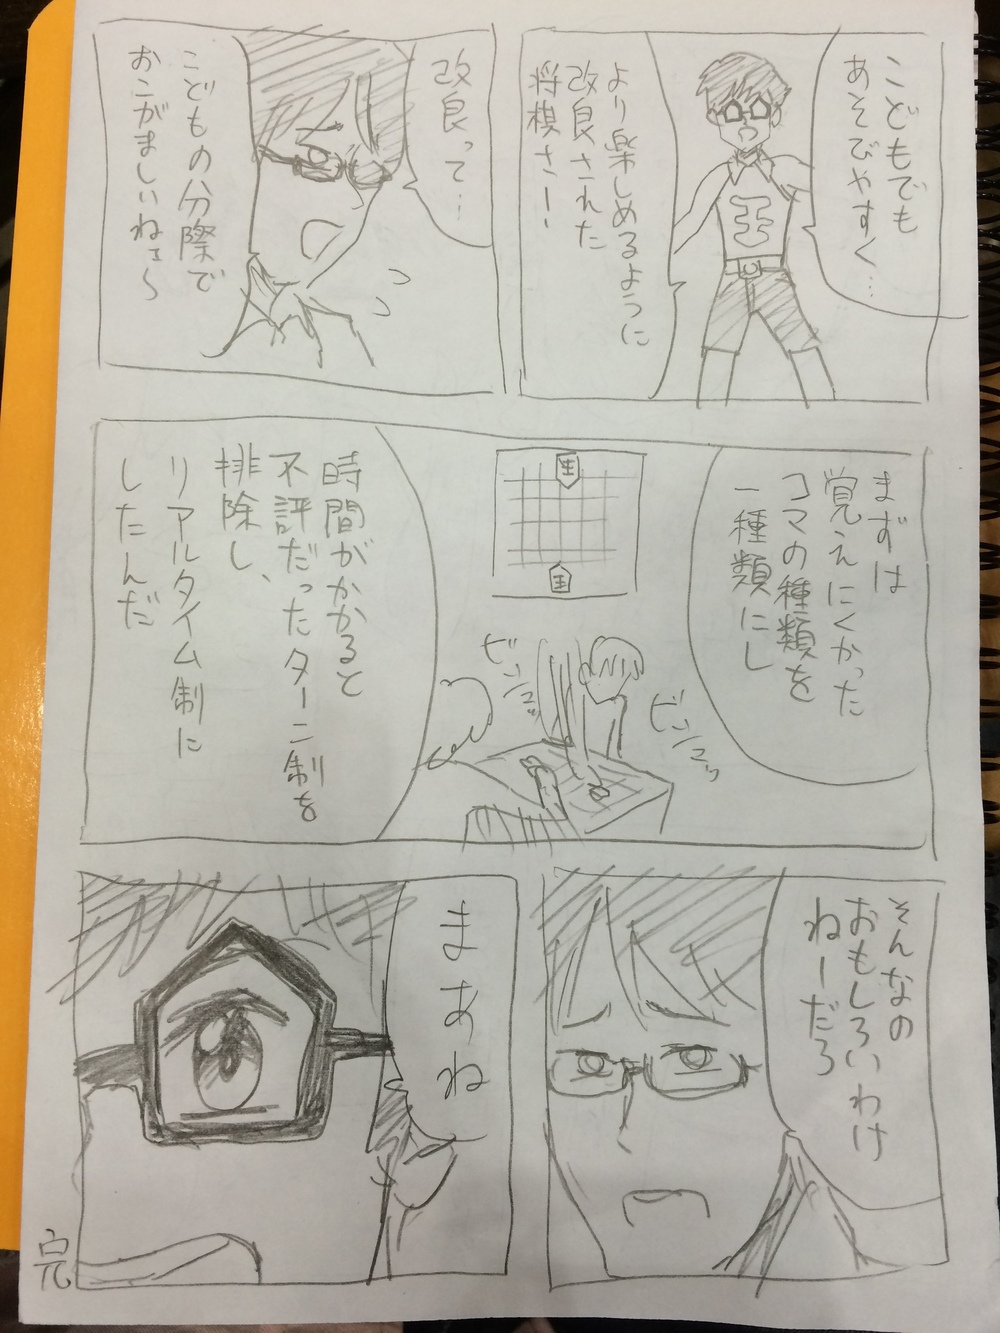 こどもでも
あそびやすく…
王
より楽しめるように
改良された
将棋さー
改良って…
こどもの分際で
おこがましいねぇ〜
まずは
覚えにくかった
コマの種類を
一種類にし
王
王
ビンッ
ビンッ
時間がかかると
不評だったターン制を
排除し、
リアルタイム制に
したんだ
そんなの
おもしろいわけ
ねーだろ
まあね
完